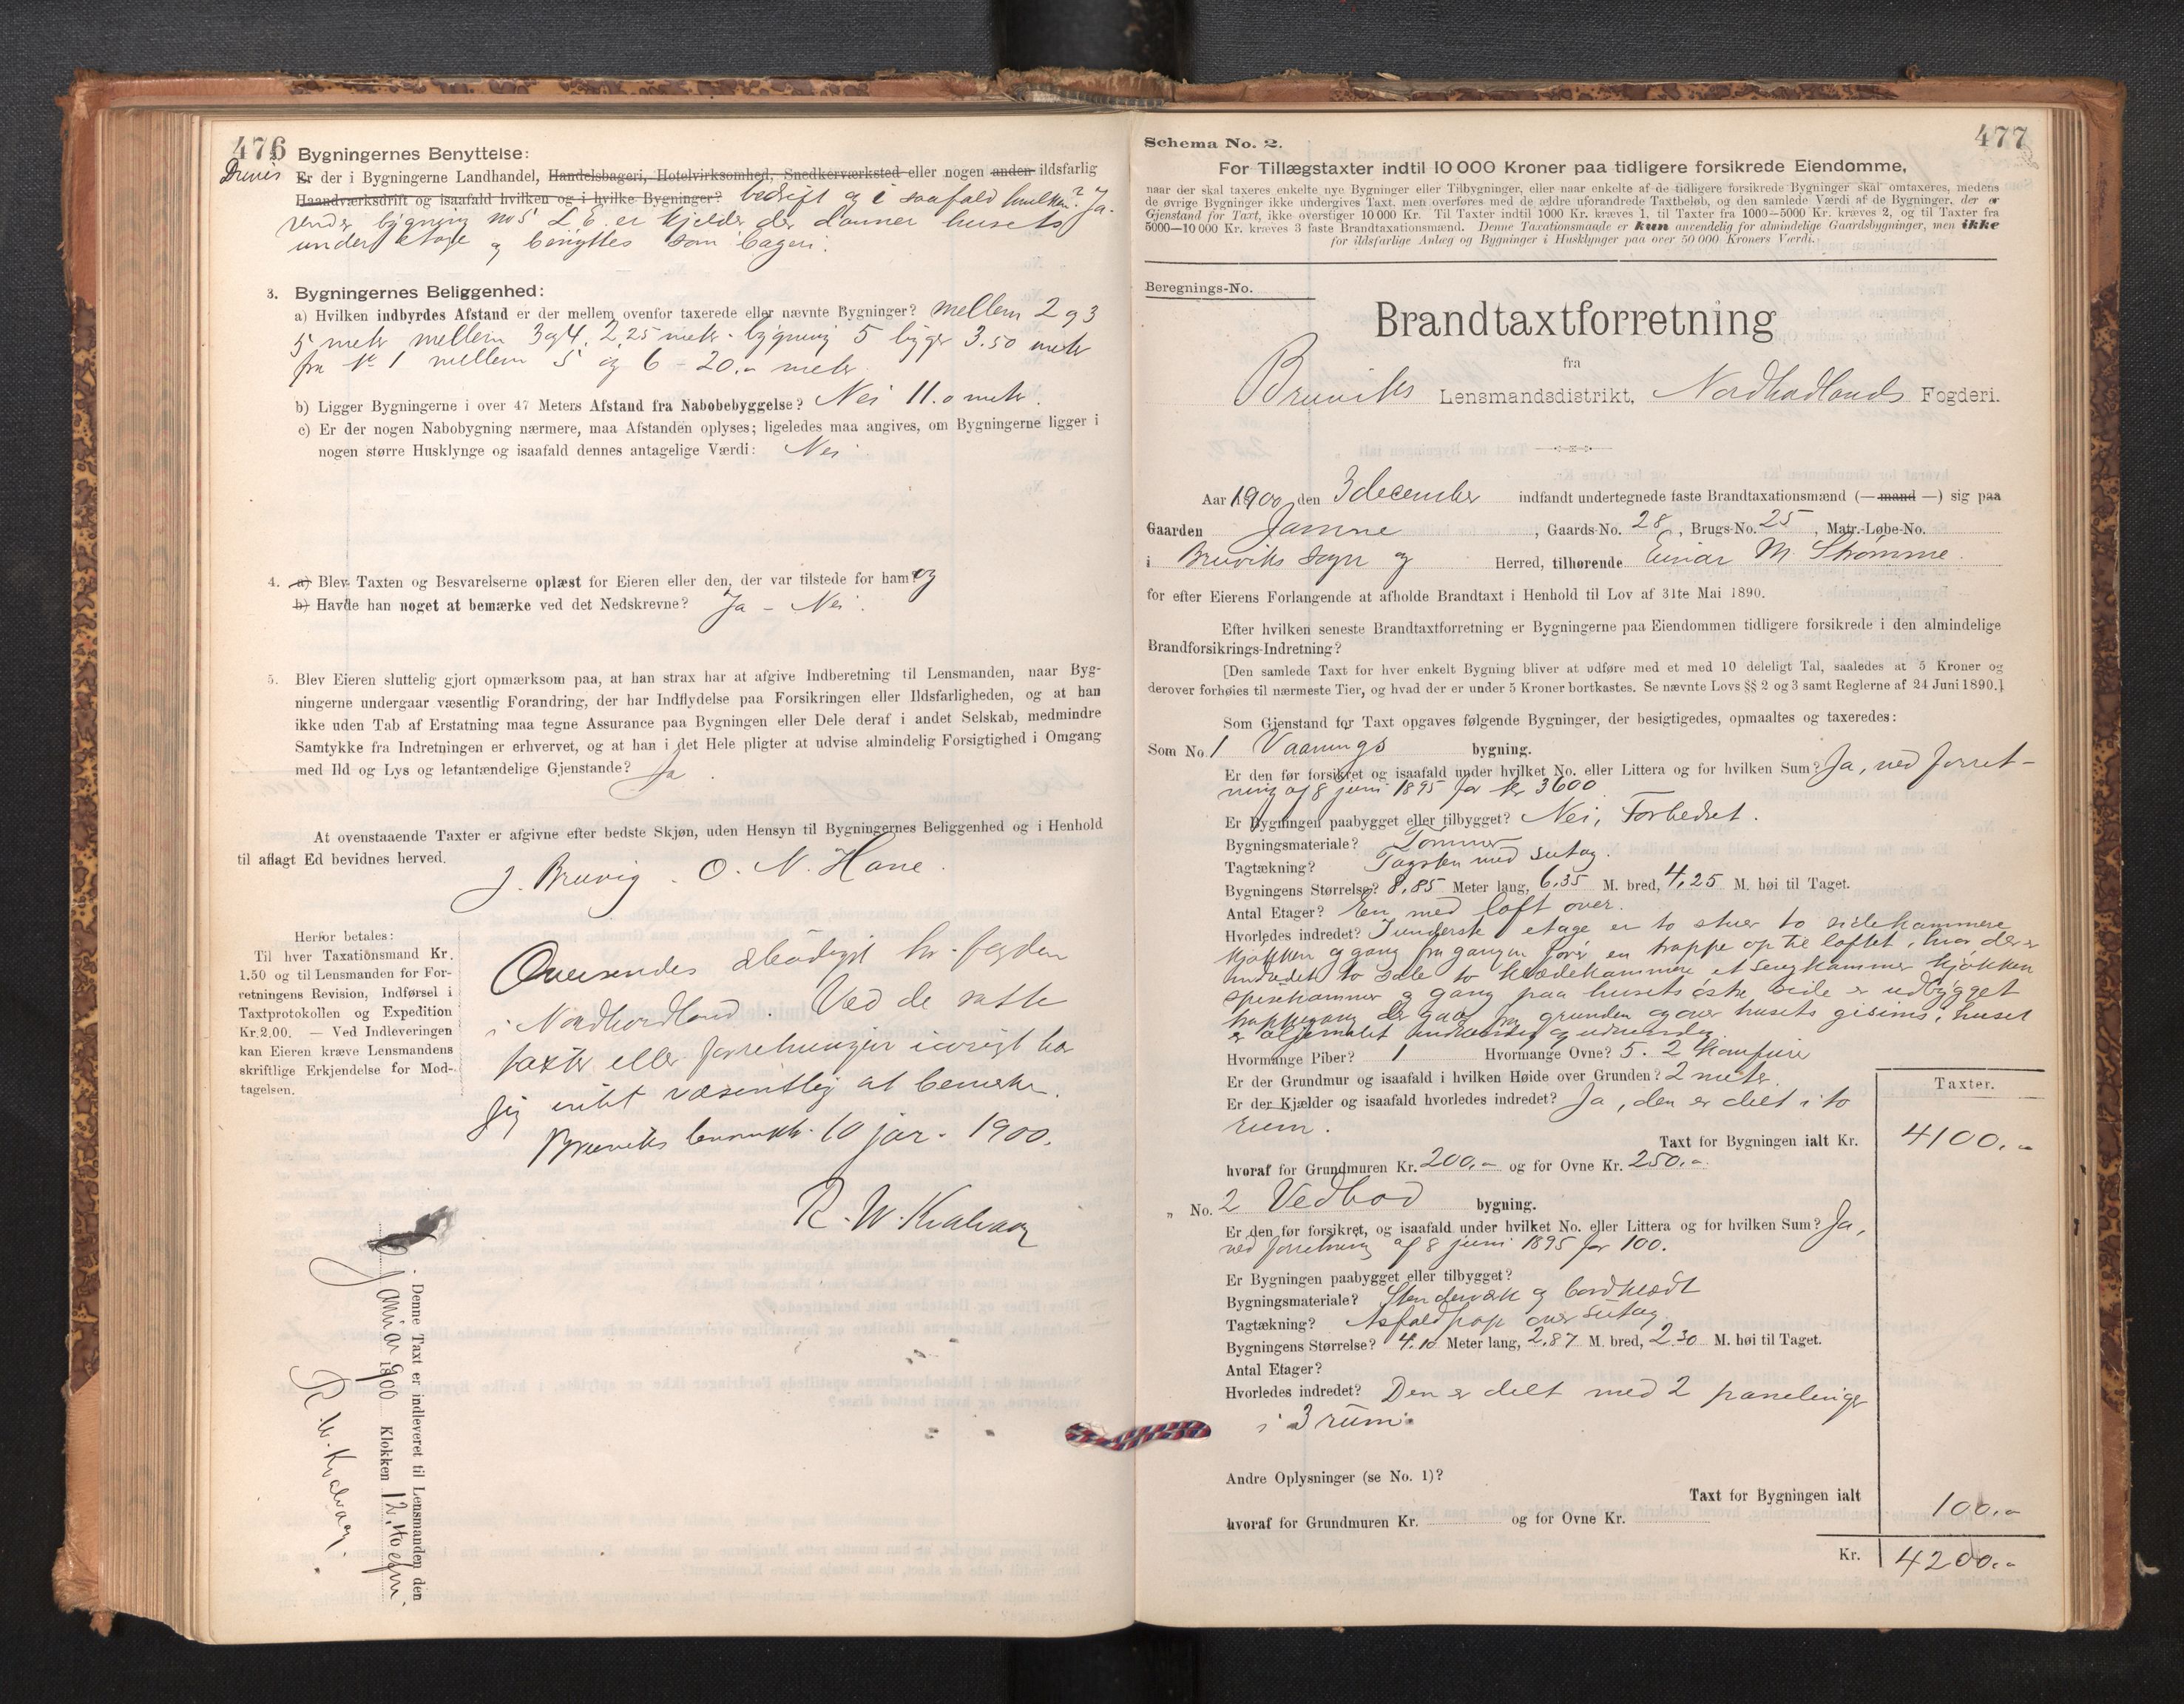 476
Bygningernes Benyttelse:
Drives
Er der i Bygningerne Landhandel, Handelsbageri, Hotelvirksomhed, Snedkerværksted eller nogen anden ildsfarlig
Haandværksdrift og isaafald hvilken og i hvilke Bygninger? bedrift og i saafald hvilken? Ja.
Under bygning no 5 er kjelder der danner husets
under etage og benyttes som bageri.
3. Bygningernes Beliggenhed:
a) Hvilken indbyrdes Afstand er der mellem ovenfor taxerede eller nævnte Bygninger? mellem 2 og 3
5 meter mellem 3 og 4. 2,25 meter - bygning 5 ligger 3.50 meter
fra No 1 mellem 5 og 6 - 20.- meter.
b) Ligger Bygningerne i over 47 Meters Afstand fra Nabobebyggelse? Nei 11.0 meter.
c) Er der nogen Nabobygning nærmere, maa Afstanden oplyses; ligeledes maa angives, om Bygningerne ligger i
nogen større Husklynge og isaafald dennes antagelige Værdi: Nei
4. a) Blev Taxten og Besvarelserne oplæst for Eieren eller den, der var tilstede for ham? og
b) Havde han noget at bemærke ved det Nedskrevne? Ja - Nei.
5. Blev Eieren sluttelig gjort opmærksom paa, at han strax har at afgive Indberetning til Lensmanden, naar Byg-
ningerne undergaar væsentlig Forandring, der har Indflydelse paa Forsikringen eller Ildsfarligheden, og at han
ikke uden Tab af Erstatning maa tegne Assurance paa Bygningen eller Dele deraf i andet Selskab, medmindre
Samtykke fra Indretningen er erhvervet, og at han i det Hele pligter at udvise almindelig Forsigtighed i Omgang
med Ild og Lys og letantændelige Gjenstande? Ja.
At ovenstaaende Taxter er afgivne efter bedste Skjøn, uden Hensyn til Bygningernes Beliggenhed og i Henhold
til aflagt Ed bevidnes herved.
J. Bruvig. O. N. Hane.
Herfor betales:
Til hver Taxationsmand Kr.
1.50 og til Lensmanden for For-
retningens Revision, Indførsel i
Taxtprotokollen og Expedition
Kr. 2.00. — Ved Indleveringen
kan Eieren kræve Lensmandens
skriftlige Erkjendelse for Mod-
tagelsen.
Oversendes ærbødigst hr. fogden
i Nordhordland. Ved de satte
taxter eller forretningen iøvrigt har
jeg intet væsentlig at bemerke.
Bruviks 10 jar. 1900.
R. W. Kvalvaag
Denne Taxt er indleveret til Lensmanden den
Januar 1900 Klokken 12,
R. W. Kvalvaag.
477
Schema No. 2.
For Tillægstaxter indtil 10 000 Kroner paa tidligere forsikrede Eiendomme,
naar der skal taxeres enkelte nye Bygninger eller Tilbygninger, eller naar enkelte af de tidligere forsikrede Bygninger skal omtaxeres, medens
de øvrige Bygninger ikke undergives Taxt, men overføres med de ældre uforandrede Taxtbeløb, og den samlede Værdi af de Bygninger, der er
Gjenstand for Taxt, ikke overstiger 10 000 Kr. Til Taxter indtil 1000 Kr. kræves 1, til Taxter fra 1000—5000 Kr. kræves 2, og til Taxter fra
5000—10 000 Kr. kræves 3 faste Brandtaxationsmænd. Denne Taxationsmaade er kun anvendelig for almindelige Gaardsbygninger, men ikke
for ildsfarlige Anlæg og Bygninger i Husklynger paa over 50 000 Kroners Værdi.
Beregnings-No.
Brandtaxtforretning
fra
Bruviks Lensmandsdistrikt, Nordhordlands Fogderi.
Aar 1900, den 3 december indfandt undertegnede faste Brandtaxationsmænd (— mand —) sig paa
Gaarden Jamne, Gaards-No. 28, Brugs-No. 25, Matr.-Løbe-No.
i Bruviks sogn og Herred, tilhørende Einar M. Strømme.
for efter Eierens Forlangende at afholde Brandtaxt i Henhold til Lov af 31te Mai 1890.
Efter hvilken seneste Brandtaxtforretning er Bygningerne paa Eiendommen tidligere forsikrede i den almindelige
Brandforsikrings-Indretning?
[Den samlede Taxt for hver enkelt Bygning bliver at udføre med et med 10 deleligt Tal, saaledes at 5 Kroner og
derover forhøies til nærmeste Tier, og hvad der er under 5 Kroner bortkastes. Se nævnte Lovs §§ 2 og 3 samt Reglerne af 24 Juni 1890.]
Som Gjenstand for Taxt opgaves følgende Bygninger, der besigtigedes, opmaaltes og taxeredes:
Som No. 1 Vaanings bygning.
Er den før forsikret og isaafald under hvilket No. eller Littera og for hvilken Sum? Ja, ved forret-
ning af 8 juni 1895 for kr 3600
Er Bygningen paabygget eller tilbygget? Nei, Forbedret.
Bygningsmateriale? Tømmer
Tagtækning? Tagsten med sutag.
Bygningens Størrelse? 8,85 Meter lang, 6,35 M. bred, 4,25 M. høi til Taget.
Antal Etager? En med loft over.
Hvorledes indredet? I underste etage er to stuer to sidekammere
kjøkken og gang fra gangen fører en trappe op til loftet, hvor der er
indredet to sale to klædekammere et sengkammer kjøkken
spisekammer og gang paa husets østre side er udbygget
trappegang der gaar fra grunden og over husets gisims. huset
er oljemalet indvendig og udvendig.
Hvormange Piber? 1 Hvormange Ovne? 5. 2 komfure
Er der Grundmur og isaafald i hvilken Høide over Grunden? 2 meter.
Er der Kjælder og isaafald hvorledes indredet? Ja, den er delt i to
rum.
Taxter.
Taxt for Bygningen ialt Kr. 4100.-
hvoraf for Grundmuren Kr. 200.- og for Ovne Kr. 250.-
„ No. 2 Vedbod bygning.
Er den før forsikret, og isaafald under hvilket No. eller Littera og for hvilken Sum? Ja,
ved forretning af 8 juni 1895 for 100.
Er Bygningen paabygget eller tilbygget?
Bygningsmateriale? Stenderværk og bordklædt
Tagtækning? Asfaldpap over sutag
Bygningens Størrelse? 4.10 Meter lang, 2,87 M. bred, 2.30 M. høi til Taget.
Antal Etager?
Hvorledes indredet? Den er delt med 2 panelinger
i 3 rum.
Andre Oplysninger (se No. 1)?
Taxt for Bygningen ialt 100.-
hvoraf for Grundmuren Kr. og for Ovne Kr.
Kr. 4200.-